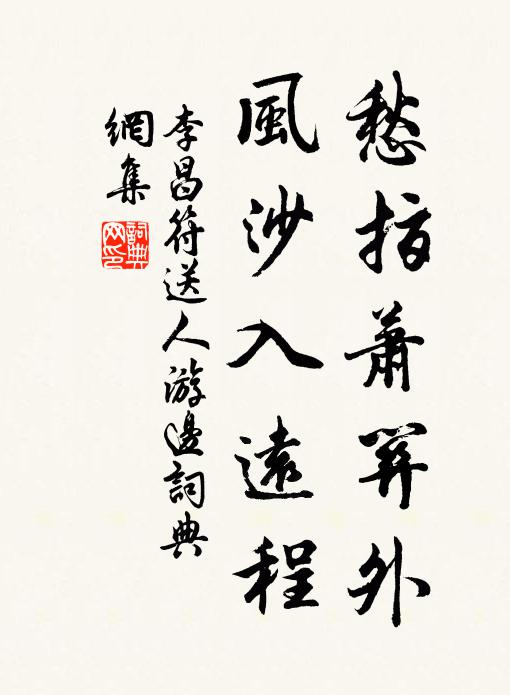 愁指蕭關外
風沙入遠程
李昌符送人游邊詞典
網集
詞典
网印